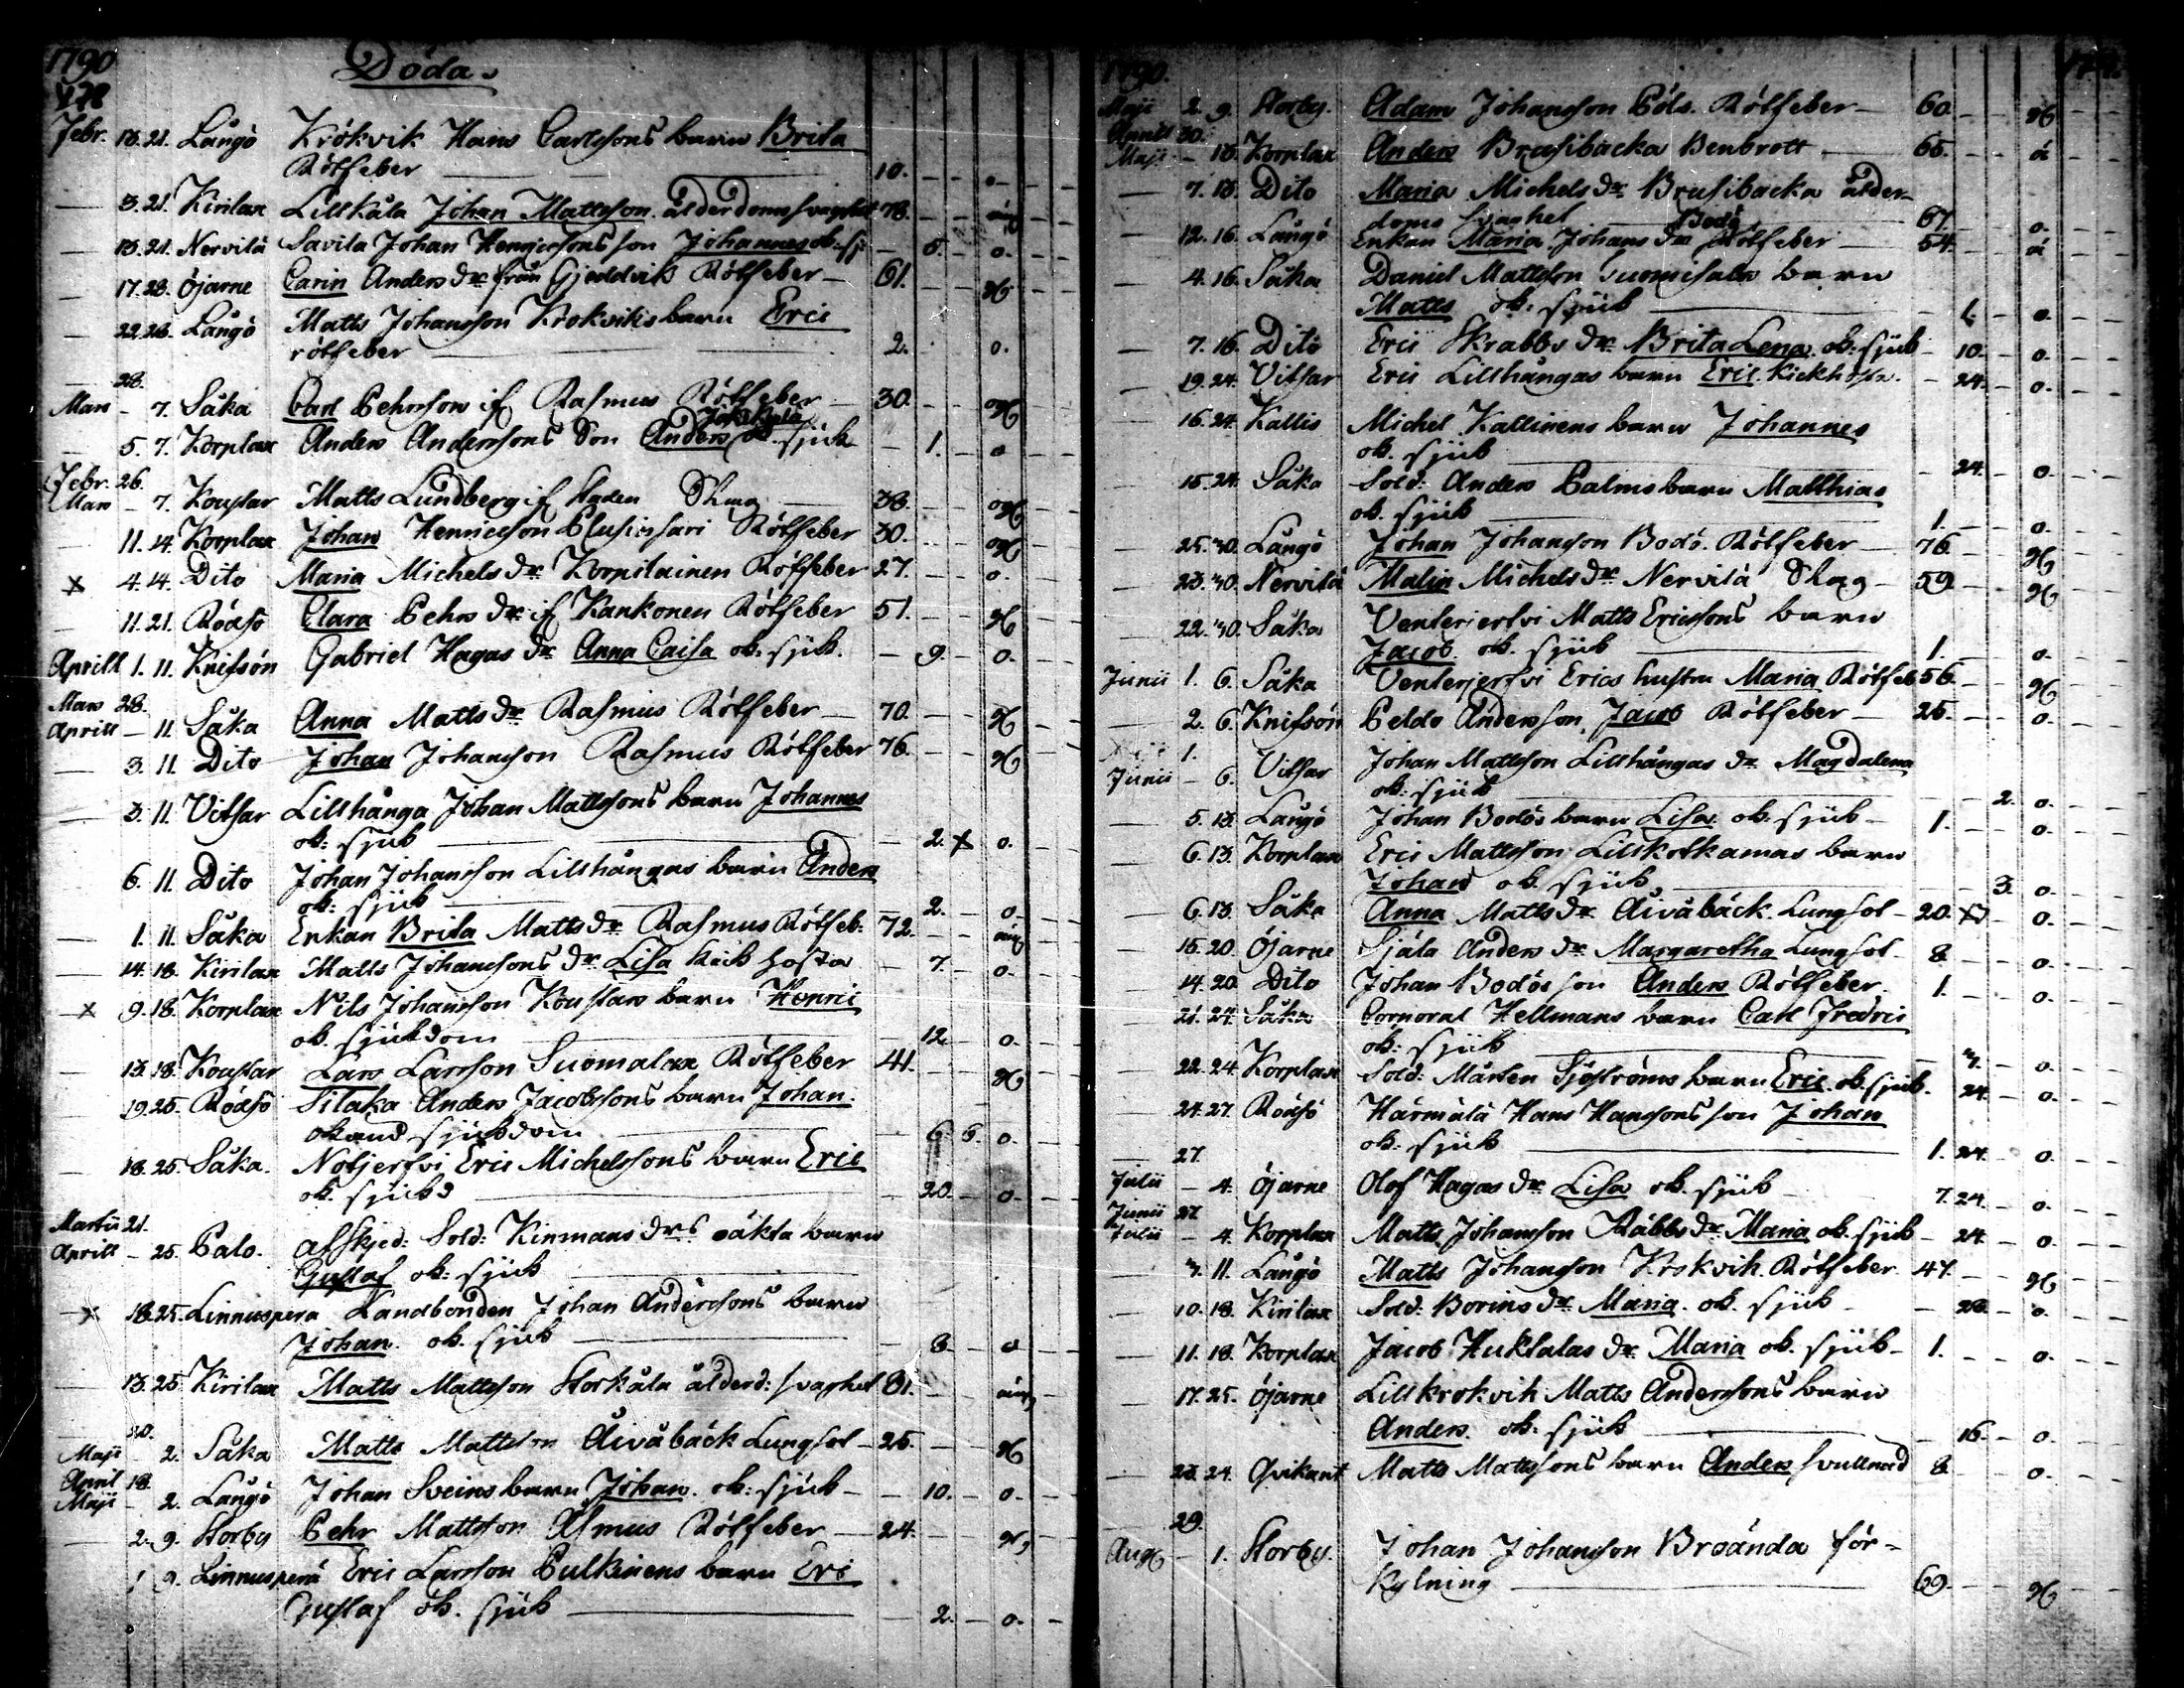 1790
178
Döda.
Febr. 13. 21. Långö Krókvik Hans Carlssons barn Brita
Rötfeber 10. o
3. 21. Kirilax Lillkåla Johan Mattsson ålderdoms svaghet 78.
13. 21. Nervilä Savila Johan Hengerssons son Johannes ob: sj: 5. o.
17. 28. Öjarne Carin Anders dr från Gjeddvik Rötfeber 61. g
22. 28. Långö Matts Johansson Krokviks barn Eric
rötfeber 2. o.
28.
Mars 7. Såka Carl Pehrsson if Rasmus Rötfeber 30. g
5. 7. Korplax Anders Anderssons Son Anders ob. sjuk 1. o
Febr. 26.
Mars 7. Koustar Matts Lundberg if Staden Slag 38. g
11. 14. Korplax Johan Henricsson Plusinsari Rötfeber 30. g
x 4. 14. Dito Maria Michels dr Korpilainen Rötfeber 27. o.
11. 21. Rödsö Clara Pehrs dr if Kankonen Rötfeber 51. g
Aprill 1. 11. Knifsön Gabriel Hagas dr Anna Caisa ob. sjuk. 9. o.
Mars 28.
Aprill 11. Såka Anna Matts dr Rasmus Rötfeber 70. g
3. 11. Dito Johan Johansson Rasmus Rötfeber 76. g
3. 11. Vitsar Lillhånga Johan Mattssons barn Johannes
ob: sjuk 2. x o.
6. 11. Dito Johan Johansson Lillhångas barn Anders
ob: sjuk 2. o.
1. 11. Såka Enkan Brita Matts dr Rasmus Rötfeb: 72.
14. 18. Kirilax Matts Johanssons dr Lisa Kikhosta 7. o.
x 9. 18. Korplax Nils Johansson Koustars barn Henric
ob. sjukdom 12. o.
13. 18. Koustar Lars Larsson Suomalax Rötfeber 41. g
19. 25. Rödsö Silaka Anders Jacobssons barn Johan.
okänd sjukdom 6. 6. o.
18. 25. Såka. Notjerfvi Eric Michelssons barn Eric
ob. sjukd 20. o.
Martii 21.
Aprill 25. Palo. afskjed: Sold: Kinmans drs oäkta barn
Gustaf ob: sjuk
x 18. 25. Linnuspera Landbonden Johan Anderssons barn
Johan. ob. sjuk 8. o
13. 25. Kirilax Matts Mattsson Storkåla ålderd: svaghet 81.
30.
Maji 2. Såka Matts Mattsson Åivåbäck Lungsot 25. g
April 18.
Maji 2. Långö Johan Sveins barn Johan. ob: sjuk 10. o.
2. 9. Storby Pehr Mattsson Asmus Rötfeber 24. g
1 9. Linnusperä Eric Larsson Pulkinens barn Eric
Gustaf ob. sjuk 2. o.
1790.
Maji 2. 9. Storby. Adam Johansson Pöls. Rötfeber 60. g
Aprill 30.
Maji 13. Korplax Anders Brusibacka Benbrott 65. ä
7. 13. Dito Maria Michels dr Brusibacka ålder-
doms svaghet 67. o.
Bodö
12. 16. Långö Enkan Maria Johans dr Rötfeber 54. ä
4. 16. Såka Daniel Mattsson Suomisalos barn
Matts ob: sjuk 1. o.
7. 16. Dito Eric Skrabbs dr Brita Lena. ob: sjuk 10. o.
19. 24. Vitsar Eric Lillhångas barn Eric. Kickhosta. 24. o.
16. 24. Kallis Michel Kallinens barn Johannes
ob. sjuk 24. o.
15. 24. Såka Sold: Anders Palms barn Matthias
ob. sjuk 1. o.
25. 30. Långö Johan Johansson Bodö. Rötfeber 76. g
23. 30. Nervilä Malin Michels dr Nervilä Slag 59. g
22. 30. Såka Venterjerfvi Matts Ericssons barn
Jacob. ob. sjuk 1. o.
Junii 1. 6. Såka Venterjerfvi Erics hustru Maria Rötfeb 56. g
2. 6. Knifsön Peldo Andersson Jacob Rötfeber 25. o.
1.
Junii 6. Vitsar Johan Mattsson Lillhångas dr Magdalena
ob: sjuk 2. o.
5. 13. Långö Johan Bodös barn Lisa. ob. sjuk 1. o.
6. 13. Korplax Eric Mattsson Lillkotkamas barn
Johan ob. sjuk 3. o.
6. 13. Såka Anna Matts dr Åivåbäck. Lungsot 20. o.
15. 20. Öjarne Själa Anders dr Margaretha Lungsot 8 o.
14. 20. Dito Johan Bodös son Anders Rötfeber. 1. o.
21. 24. Såka Corporal Hellmans barn Carl Fredric
ob: sjuk 3. o.
22. 24. Korplax Sold: Mårten Sjöströms barn Eric. ob. sjuk. 24. o.
24. 27. Rödsö Härmälä Hans Hanssons son Johan
ob: sjuk 1. 24. o.
27.
Julii 4. Öjarne Olof Hagas dr Lisa ob. sjuk 7. 24. o.
Junii 27
Julii 4. Korplax Matts Johansson Räbbs dr Maria ob. sjuk 24. o.
3. 11. Långö Matts Johansson Krokvik. Rötfeber 47. g
10. 18. Kirilax Sold: Borins dr Maria. ob. sjuk 28. o.
11. 18. Korplax Jacob Huktalas dr Maria ob. sjuk 1. o.
17. 25. Öjarne Lillkrokvik Matts Anderssons barn
Anders. ob: sjuk 16. o.
23. 24. Qvikant Matts Mattssons barn Anders svullnad 8 o.
29.
Aug 1. Storby. Johan Johansson Broända för-
kylning 69. g